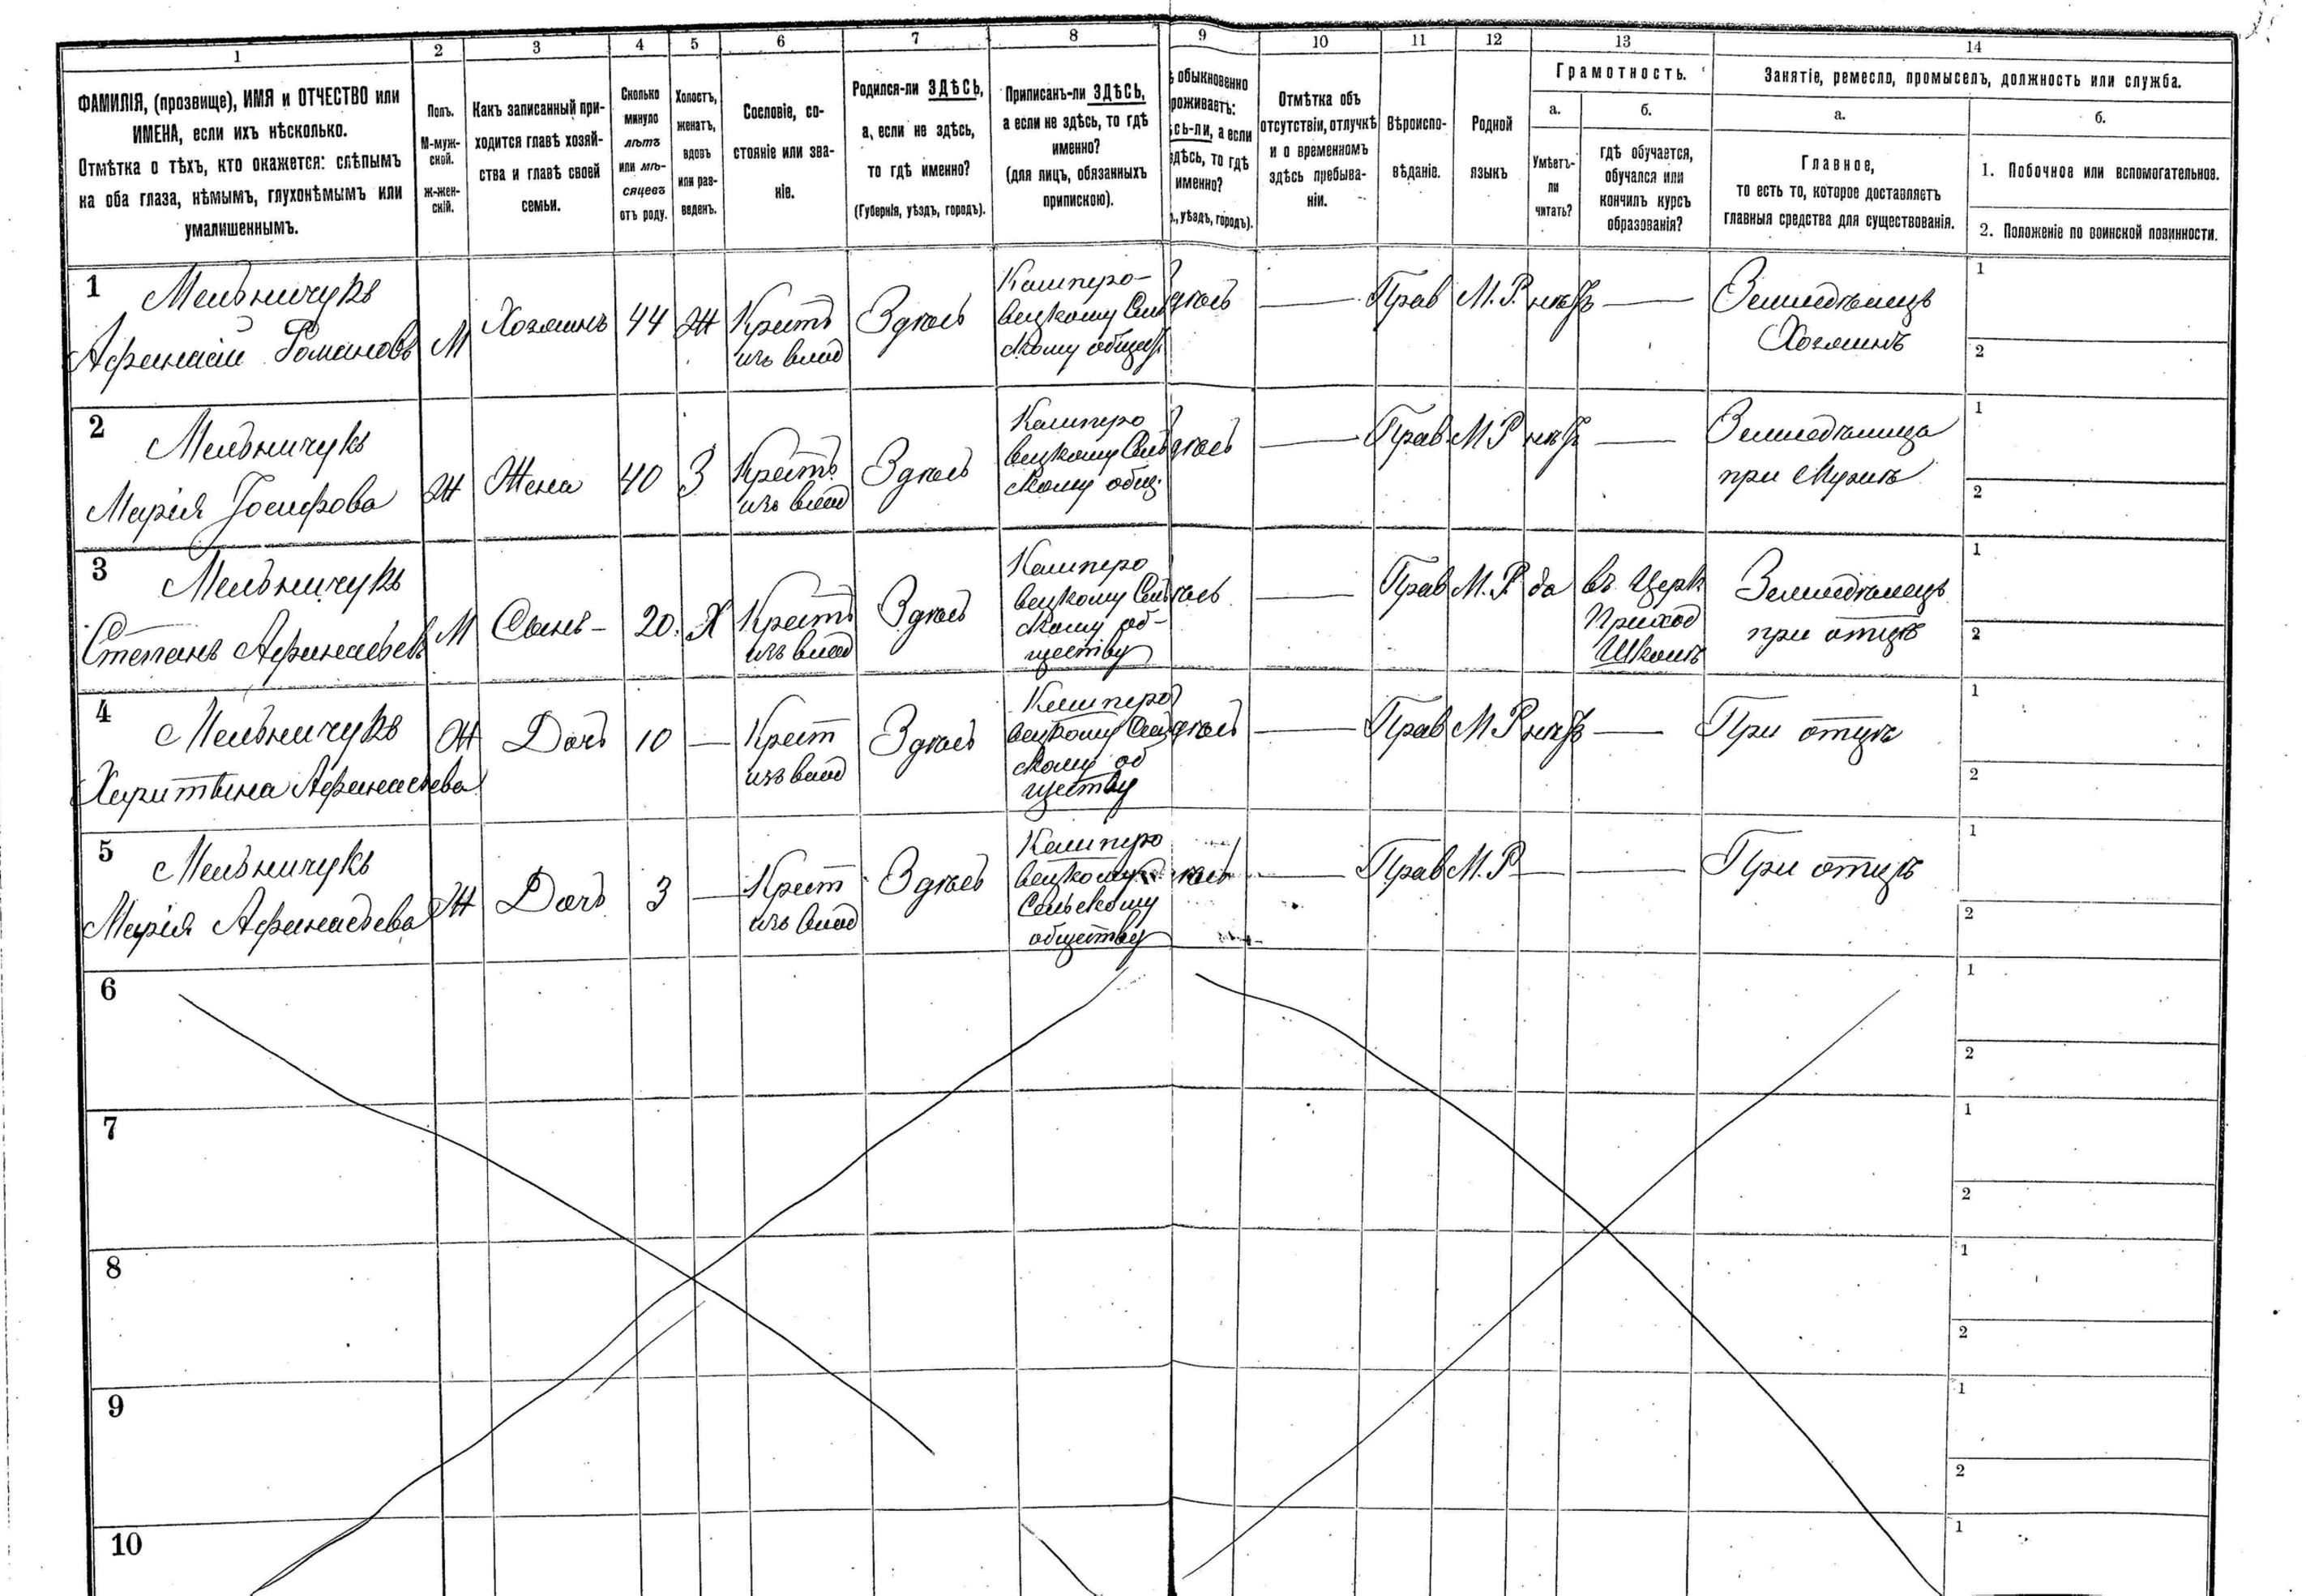 1 2 3 4 5 6 7 8 9 10 11 12 13 14
ФАМИЛІЯ, (прозвище), ИМЯ и ОТЧЕСТВО или
ИМЕНА, если ихъ нѣсколько.
Отмѣтка о тѣхъ, кто окажется: слѣпымъ
на оба глаза, нѣмымъ, глухонѣмымъ или
умалишеннымъ.
Полъ.
М-муж-
ской.
ж-жен-
скій.
Какъ записанный при-
ходится главѣ хозяй-
ства и главѣ своей
семьи.
Сколько
минуло
лѣтъ
или мѣ-
сяцевъ
отъ роду.
Холостъ,
женатъ,
вдовъ
или раз-
веденъ.
Сословіе, со-
стояніе или зва-
ніе.
Родился-ли ЗДѢСЬ,
а, если не здѣсь,
то гдѣ именно?
(Губернія, уѣздъ, городъ).
Приписанъ-ли ЗДѢСЬ,
а если не здѣсь, то гдѣ
именно?
(для лицъ, обязанныхъ
припискою).
обыкновенно
роживаетъ:
сь-ли, а если
здѣсь, то гдѣ
именно?
уѣздъ, городъ).
Отмѣтка объ
отсутствіи, отлучкѣ
и о временномъ
здѣсь пребыва-
ніи.
Вѣроиспо-
вѣданіе.
Родной
языкъ
Грамотность.
а.
Умѣетъ-
ли
читать?
б.
гдѣ обучается,
обучался или
кончилъ курсъ
образованія?
Занятіе, ремесло, промыселъ, должность или служба.
а.
Главное,
то есть то, которое доставляетъ
главныя средства для существованія.
б.
1. Побочное или вспомогательное.
2. Положеніе по воинской повинности.
1
Мельничукъ
Афанасій Романовъ
М
Хозяинъ
44
Ж
Крест
изъ влад
Здѣсь
вецкому Сель
скому общес
дѣсь
—
Прав
М. Р.
нѣтъ
—
Земледѣлецъ
Хозяинъ
1
2
2
Мельничукъ
Марія Іосифова
Ж
Жена
40
З
Крест
изъ влад
Здѣсь
вецкому Сель
скому общ.
дѣсь
—
Прав
М Р
нѣтъ
—
Земледѣлица
при Мужѣ
1
2
3
Мельничукъ
Степанъ Афанасьевъ
М
Сынъ -
20.
Х
Крест
изъ влад
Здѣсь
вецкому Сель
скому об-
ществу
ѣсь
—
Прав
М. Р.
да
въ Церк
Приход
Школѣ
Земледѣлецъ
при отцѣ
1
2
4
Мельничукъ
Харитина Афанасьева
Ж
Дочь
10
—
Крест
изъ влад
Здѣсь
вецкому Сель
скому об
ществу
дѣсь
—
Прав
М. Р
нѣтъ
—
При отцѣ
1
2
5
Мельничукъ
Марія Афанасьева
Ж
Дочь
3
—
Крест
изъ влад
Здѣсь
вецкому
Сельскому
обществу
ѣсь
—
Прав
М. Р
—
—
При отцѣ
1
2
6
1
2
7
1
2
8
1
2
9
1
2
10
1